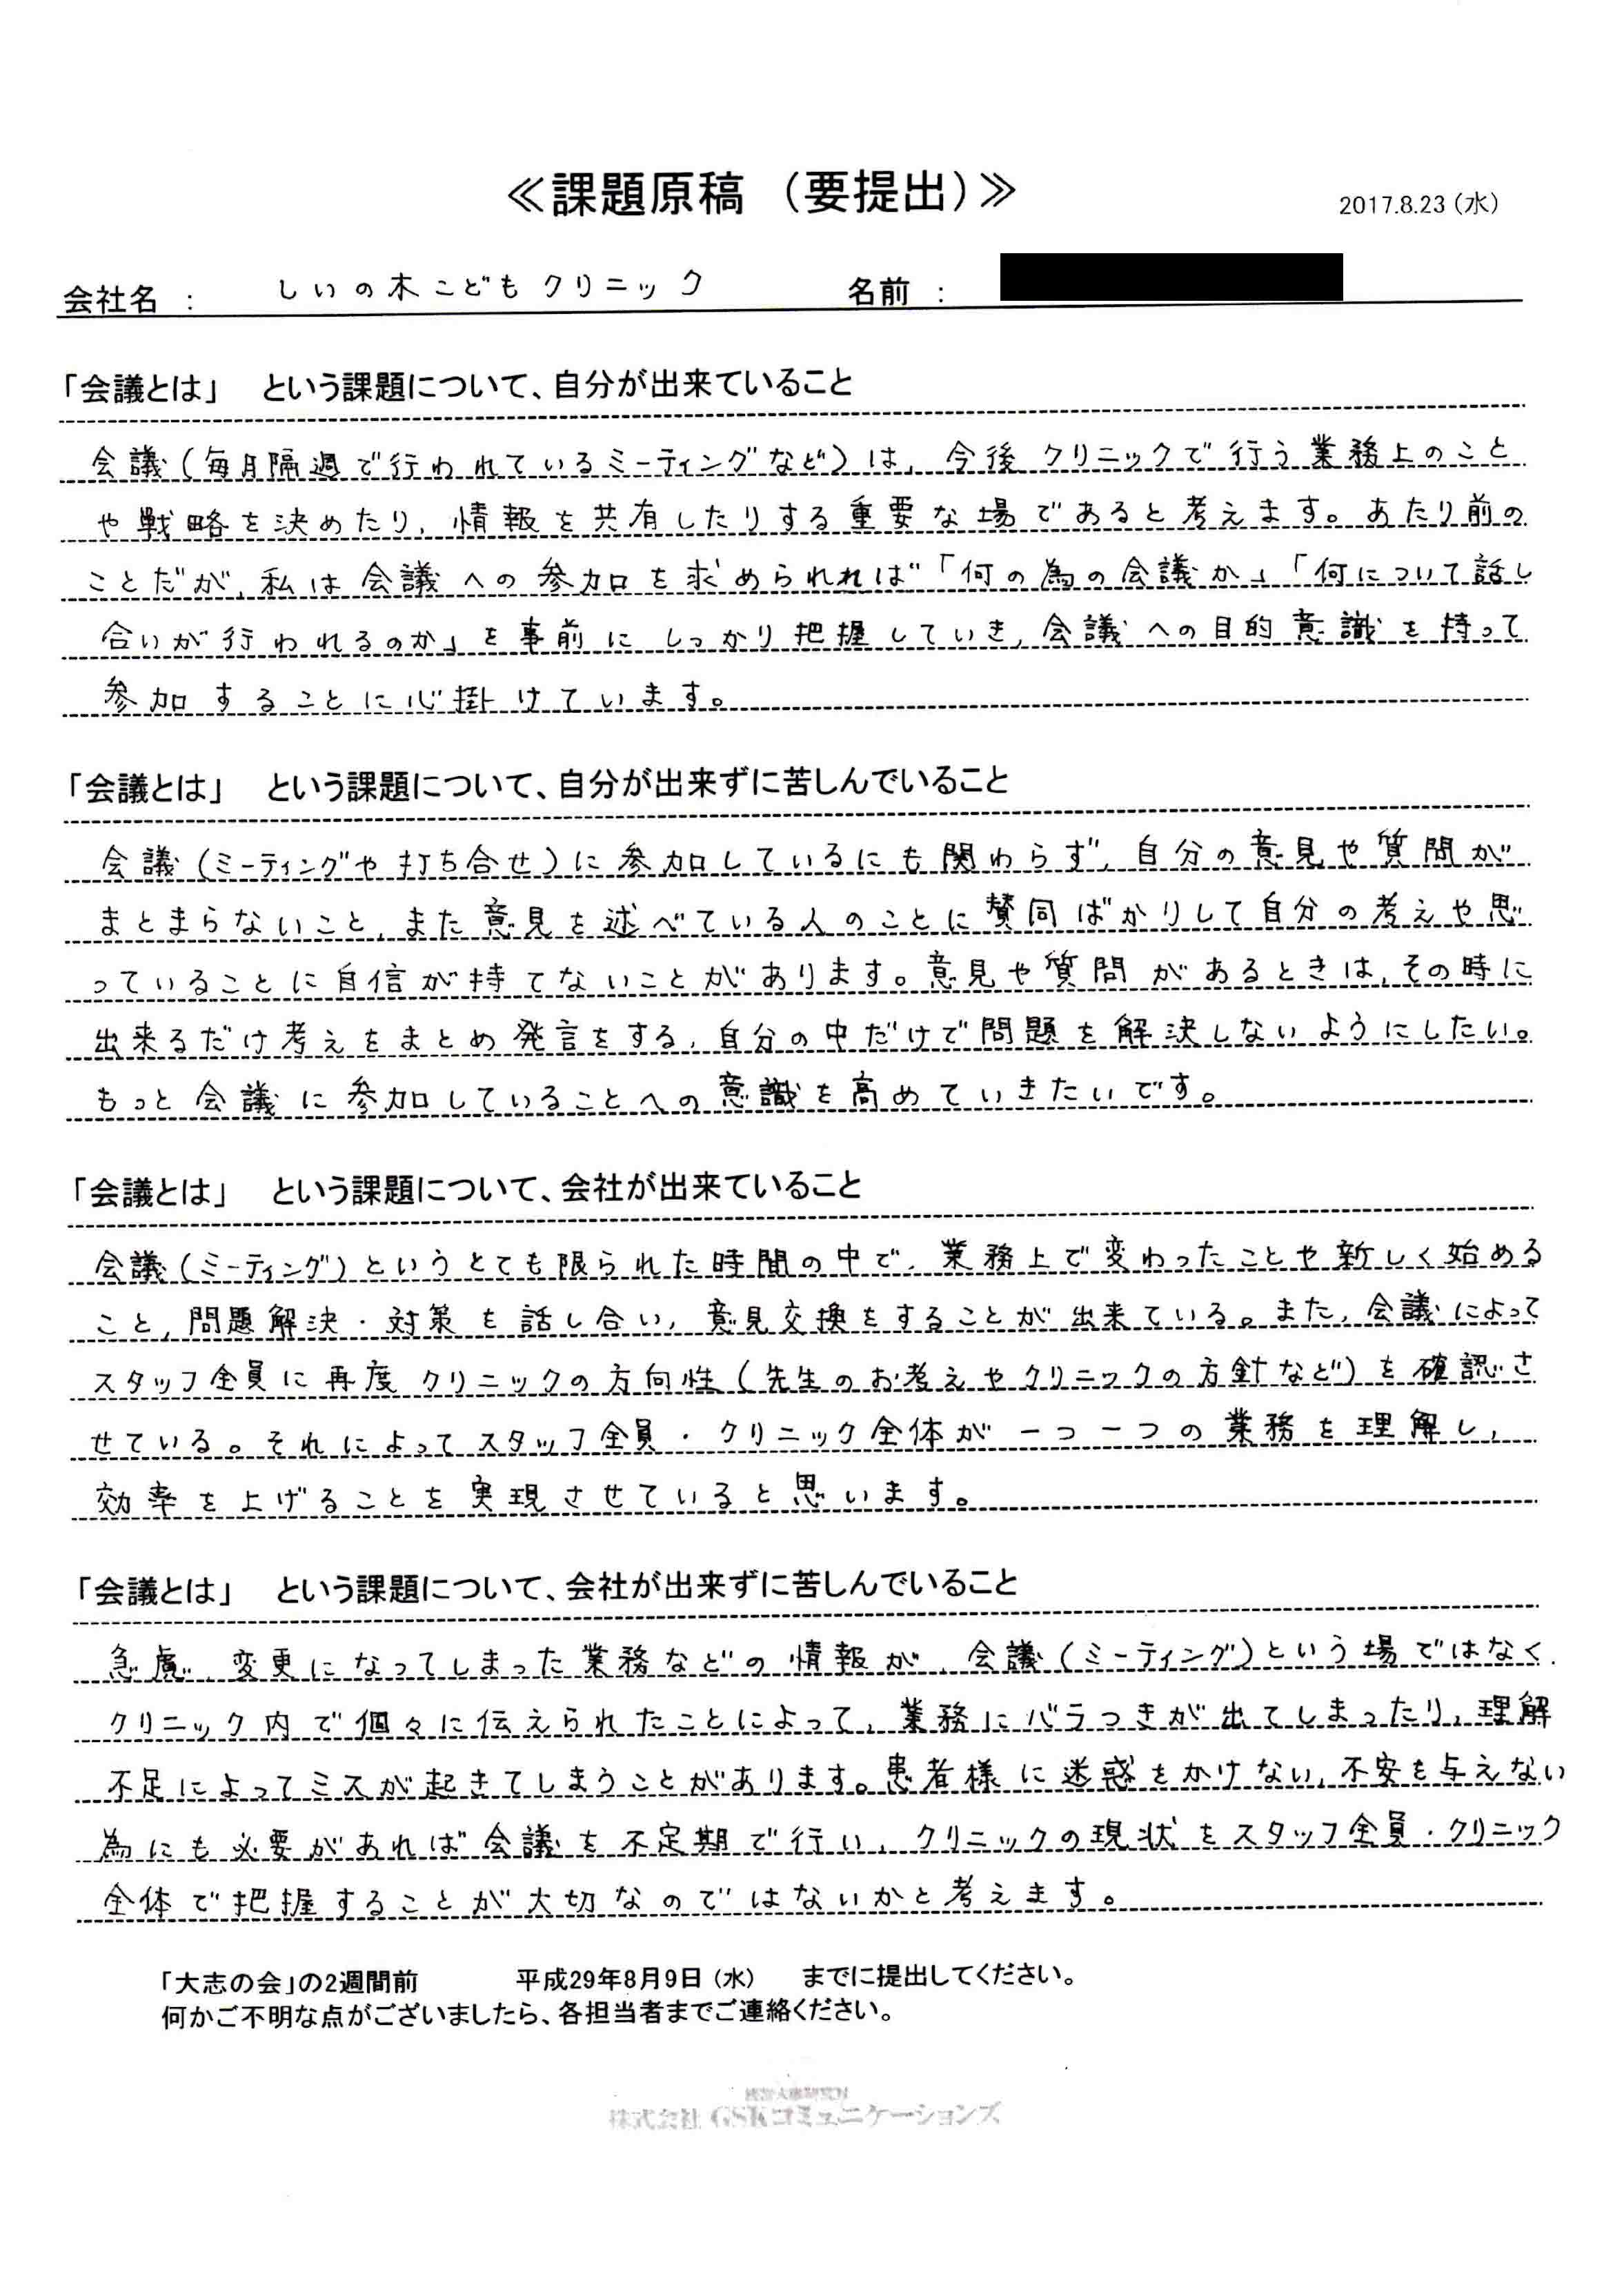 ≪課題原稿 （要提出）≫
2017.8.23（水）
会社名 ： しいの木こどもクリニック 名前 ：
「会議とは」 という課題について、自分が出来ていること
会議(毎月隔週で行われているミーティングなど)は、今後クリニックで行う業務上のこと
や戦略を決めたり、情報を共有したりする重要な場であると考えます。あたり前の
ことだが、私は会議への参加を求められれば「何の為の会議か」「何について話し
合いが行われるのか」を事前にしっかり把握していき、会議への目的意識を持って
参加することに心掛けています。
「会議とは」 という課題について、自分が出来ずに苦しんでいること
会議(ミーティングや打ち合せ)に参加しているにも関わらず、自分の意見や質問が
まとまらないこと、また意見を述べている人のことに賛同ばかりして自分の考えや思
っていることに自信が持てないことがあります。意見や質問があるときは、その時に
出来るだけ考えをまとめ発言をする、自分の中だけで問題を解決しないようにしたい。
もっと会議に参加していることへの意識を高めていきたいです。
「会議とは」 という課題について、会社が出来ていること
会議(ミーティング)というとても限られた時間の中で、業務上で変わったことや新しく始める
こと、問題解決・対策を話し合い、意見交換をすることが出来ている。また、会議によって
スタッフ全員に再度クリニックの方向性(先生のお考えやクリニックの方針など)を確認さ
せている。それによってスタッフ全員・クリニック全体が一つ一つの業務を理解し、
効率を上げることを実現させていると思います。
「会議とは」 という課題について、会社が出来ずに苦しんでいること
急慮、変更になってしまった業務などの情報が、会議(ミーティング)という場ではなく、
クリニック内で個々に伝えられたことによって、業務にバラつきが出てしまったり、理解
不足によってミスが起きてしまうことがあります。患者様に迷惑をかけない、不安を与えない
為にも必要があれば会議を不定期で行い、クリニックの現状をスタッフ全員・クリニック
全体で把握することが大切なのではないかと考えます。
「大志の会」の2週間前 平成29年8月9日（水） までに提出してください。
何かご不明な点がございましたら、各担当者までご連絡ください。
株式会社 GSKコミュニケーションズ